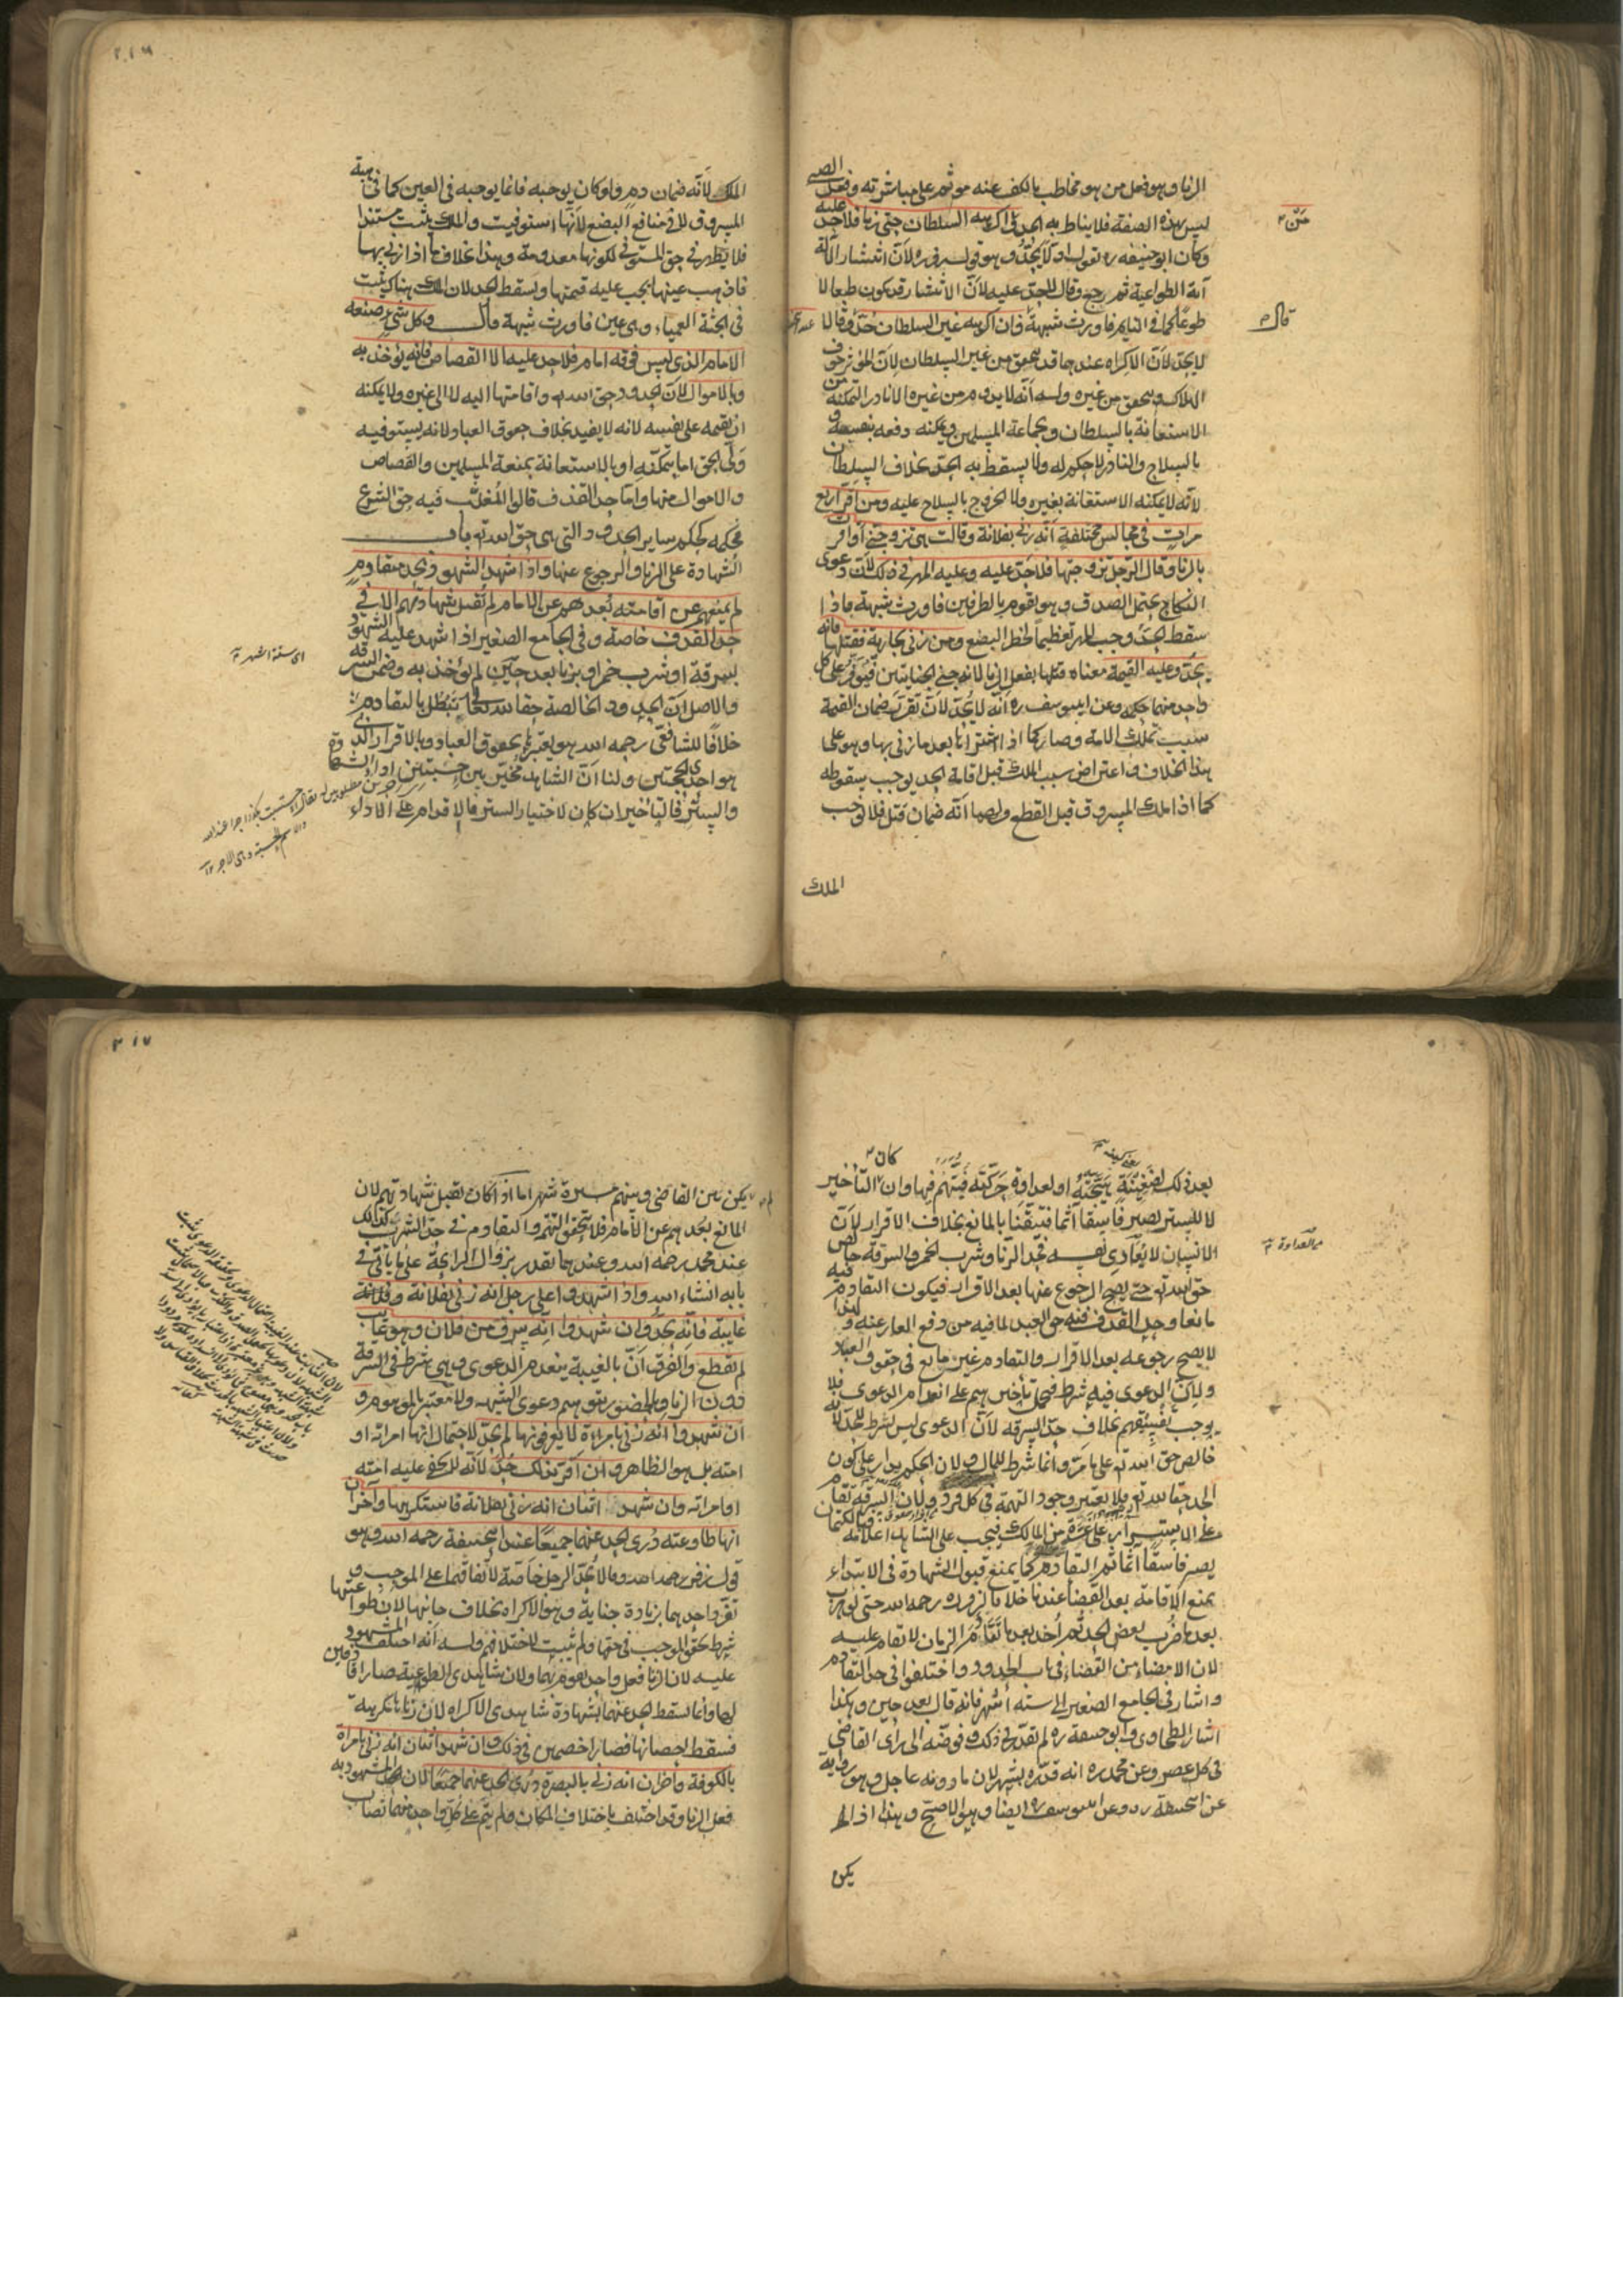 الزنا وهو فعل من هو مخاطب بالكف عنه موثم على مباشرته وفعل الصبي
ليس بهذه الصفة فلا يناط به الحد ومن اكرهه السلطان حتى زنا فلا حد عليه
وكان ابو حنيفة ره يقول اولا يحد وهو قول زفر ره لان انتشار الآلة
آية الطواعية ثم رجع وقال لا حد عليه لان الانتشار قد يكون طبعا لا
طوعا كما في النايم فاورث شبهة فان اكرهه غير السلطان حد وقالا
لا يحد لان الاكراه عندهما قد يتحقق من غير السلطان لان المؤثر خوف
الهلاك ويتحقق من غيره وله انه لا يدوم من غيره الا نادر التمكنه من
الاستعانة بالسلطان وبجماعة المسلمين ويمكنه دفعه بنفسه
بالسلاح والنادر لا حكم له ولا يسقط به الحد بخلاف السلطان
لانه لا يمكنه الاستعانة بغيره ولا الخروج بالسلاح عليه ومن اقر اربع
مرات في مجالس مختلفة انه زنى بفلانة وقالت هي تزوجني او اقرت
بالزنا وقال الرجل تزوجتها فلا حد عليه وعليه المهر في ذلك لان دعوى
النكاح يحتمل الصدق وهو يقوم بالطرفين فاورث شبهة فاذا
سقط الحد وجب المهر تعظيما لخطر البضع ومن زنى بجارية فقتلها فانه
يحد وعليه القيمة معناه قتلها بفعل الزنا لانه جنى الجنايتين فيوفر على كل
واحد منهما حكمه وعن ابي يوسف ره انه لا يحد لان تقرر ضمان القيمة
سبب تملك الامة وصار كما اذا اشتراها بعد ما زنى بها وهو على
هذا الخلاف واعتراض سبب الملك قبل اقامة الحد يوجب سقوطه
كما اذا ملك المسروق قبل القطع ولهما انه ضمان قتل فلا توجب
الملك
قال
الملك لانه ضمان دم ولو كان يوجبه فانما يوجبه في العين كما في هبة
المسروق لا في منافع البضع لانها استوفيت والملك يثبت مستندا
فلا يظهر في حق المستوفى لكونها معدومة وهذا بخلاف ما اذا زنى بها
فاذهب عينها يجب عليه قيمتها ويسقط الحد لان الملك هناك يثبت
في الجثة العمياء وهي عين فاورث شبهة قال وكل شيء صنعه
الامام الذي ليس فوقه امام فلا حد عليه الا القصاص فانه يؤخذ به
وبالاموال لان الحدود حق الله تع واقامتها اليه لا الى غيره ولا يمكنه
ان يقيمه على نفسه لانه لا يفيد بخلاف حقوق العباد لانه يستوفيه
ولي الحق اما بتمكنه او بالاستعانة بمنعة المسلمين والقصاص
والاموال منها واما حد القذف قالوا المغلب فيه حق الشرع
فحكمه كحكم ساير الحدود التي هي حق الله تع باب
الشهادة على الزنا والرجوع عنها واذا شهد الشهود بحد متقادم
لم يمنعهم عن اقامته بعدهم عن الامام لم تقبل شهادتهم الا في
حد القذف خاصة وفي الجامع الصغير اذا شهد عليه الشهود
بسرقة او شرب خمر او بزنا بعد حين لم يؤخذ به وضمن السرقة
والاصل ان الحدود الخالصة حقا لله تعالى تبطل بالتقادم
خلافا للشافعي رحمه الله هو يعتبرها بحقوق العباد وبالاقرار الذي
هو احدى الحجتين ولنا ان الشاهد مخير بين حسبتين اداء الشهادة
والستر فالتاخير ان كان لاختيار الستر فالاقدام على الاداء
اى ستة اشهر
بعد ذلك لضغينة هيجته او لعداوة حركته فيتهم فيها وان كان التأخير
لا للستر يصير فاسقا آثما فتيقنا بالمانع بخلاف الاقرار لان
الانسان لا يعادي نفسه فحد الزنا وشرب الخمر والسرقة خالص
حق الله تع حتى يصح الرجوع عنها بعد الاقرار فيكون التقادم فيه
مانعا وحد القذف فيه حق العبد لما فيه من دفع العار عنه ولهذا
لا يصح رجوعه بعد الاقرار والتقادم غير مانع في حقوق العباد
ولان الدعوى فيه شرط فيحمل تأخيرهم على انعدام الدعوى فلا
يوجب تفسيقهم بخلاف حد السرقة لان الدعوى ليس بشرط للحد لانه
خالص حق الله تع على ما مر وانما شرط للمال ولان الحكم يدار على كون
الحد حقا لله تع فلا يعتبر وجود التهمة في كل فرد ولان السرقة تقام
على الاستسرار على غرة من المالك فيجب على الشاهد اعلامه فبالكتمان
يصير فاسقا آثما ثم التقادم كما يمنع قبول الشهادة في الابتداء
يمنع الاقامة بعد القضاء عندنا خلافا لزفر ره رحمه الله حتى لو هرب
بعد ما ضرب بعض الحد ثم اخذ بعد ما تقادم الزمان لا تقام عليه
لان الامضاء من القضاء في باب الحدود واختلفوا في حد التقادم
واشار في الجامع الصغير الى ستة اشهر فانه قال بعد حين وهكذا
اشار الطحاوي وابو حنيفة ره لم يقدر في ذلك وفوضه الى رأى القاضي
في كل عصر وعن محمد ره انه قدره بشهر لان ما دونه عاجل وهو رواية
عن ابي حنيفة ره وعن ابي يوسف ره ايضا وهو الاصح وهذا اذا لم
يكن
من العداوة
يكن بين القاضي وبينهم مسيرة شهر اما اذا كان تقبل شهادتهم لان
المانع بعدهم عن الامام فلا يتحقق التهم والتقادم في حد الشرب كذلك
عند محمد رحمه الله وعندهما تقدر بزوال الرايحة على ما يأتي في
بابه انشاء الله واذا شهدوا على رجل انه زنى بفلانة وفلانة
غايبة فانه يحد وان شهدوا انه سرق من فلان وهو غايب
لم يقطع والفرق ان بالغيبة ينعدم الدعوى وهي شرط في السرقة
دون الزنا وبالحضور يتوهم دعوى الشبهة ولا معتبر بالموهوم و
ان شهدوا انه زنى بامرأة لا يعرفونها لم يحد لاحتمال انها امراته او
امته بل هو الظاهر وان اقر بذلك حد لانه لا يخفى عليه امته
او امراته وان شهد اثنان انه زنى بفلانة فاستكرهها وآخران
انها طاوعته درئ الحد عنهما جميعا عند ابي حنيفة رحمه الله وهو
قول زفر رحمه الله وقالا يحد الرجل خاصة لاتفاقهما على الموجب و
تفرد احدهما بزيادة جناية وهو الاكراه بخلاف جانبها لان طواعيتها
شرط تحقق الموجب في حقها ولم يثبت لاختلافهم وله انه اختلف المشهود
عليه لان الزنا فعل واحد يقوم بهما ولان شاهدى الطوعية صارا قاذفين
لها وانما يسقط الحد عنهما بشهادة شاهدى الاكراه لان زناها مكرهة
فسقط احصانها فصارا خصمين في ذلك وان شهد اثنان انه زنى بامراة
بالكوفة واخران انه زنى بالبصرة درئ الحد عنهما جميعا لان المشهود به
فعل الزنا وقد اختلف باختلاف المكان ولم يتم على كل واحد منهما نصاب